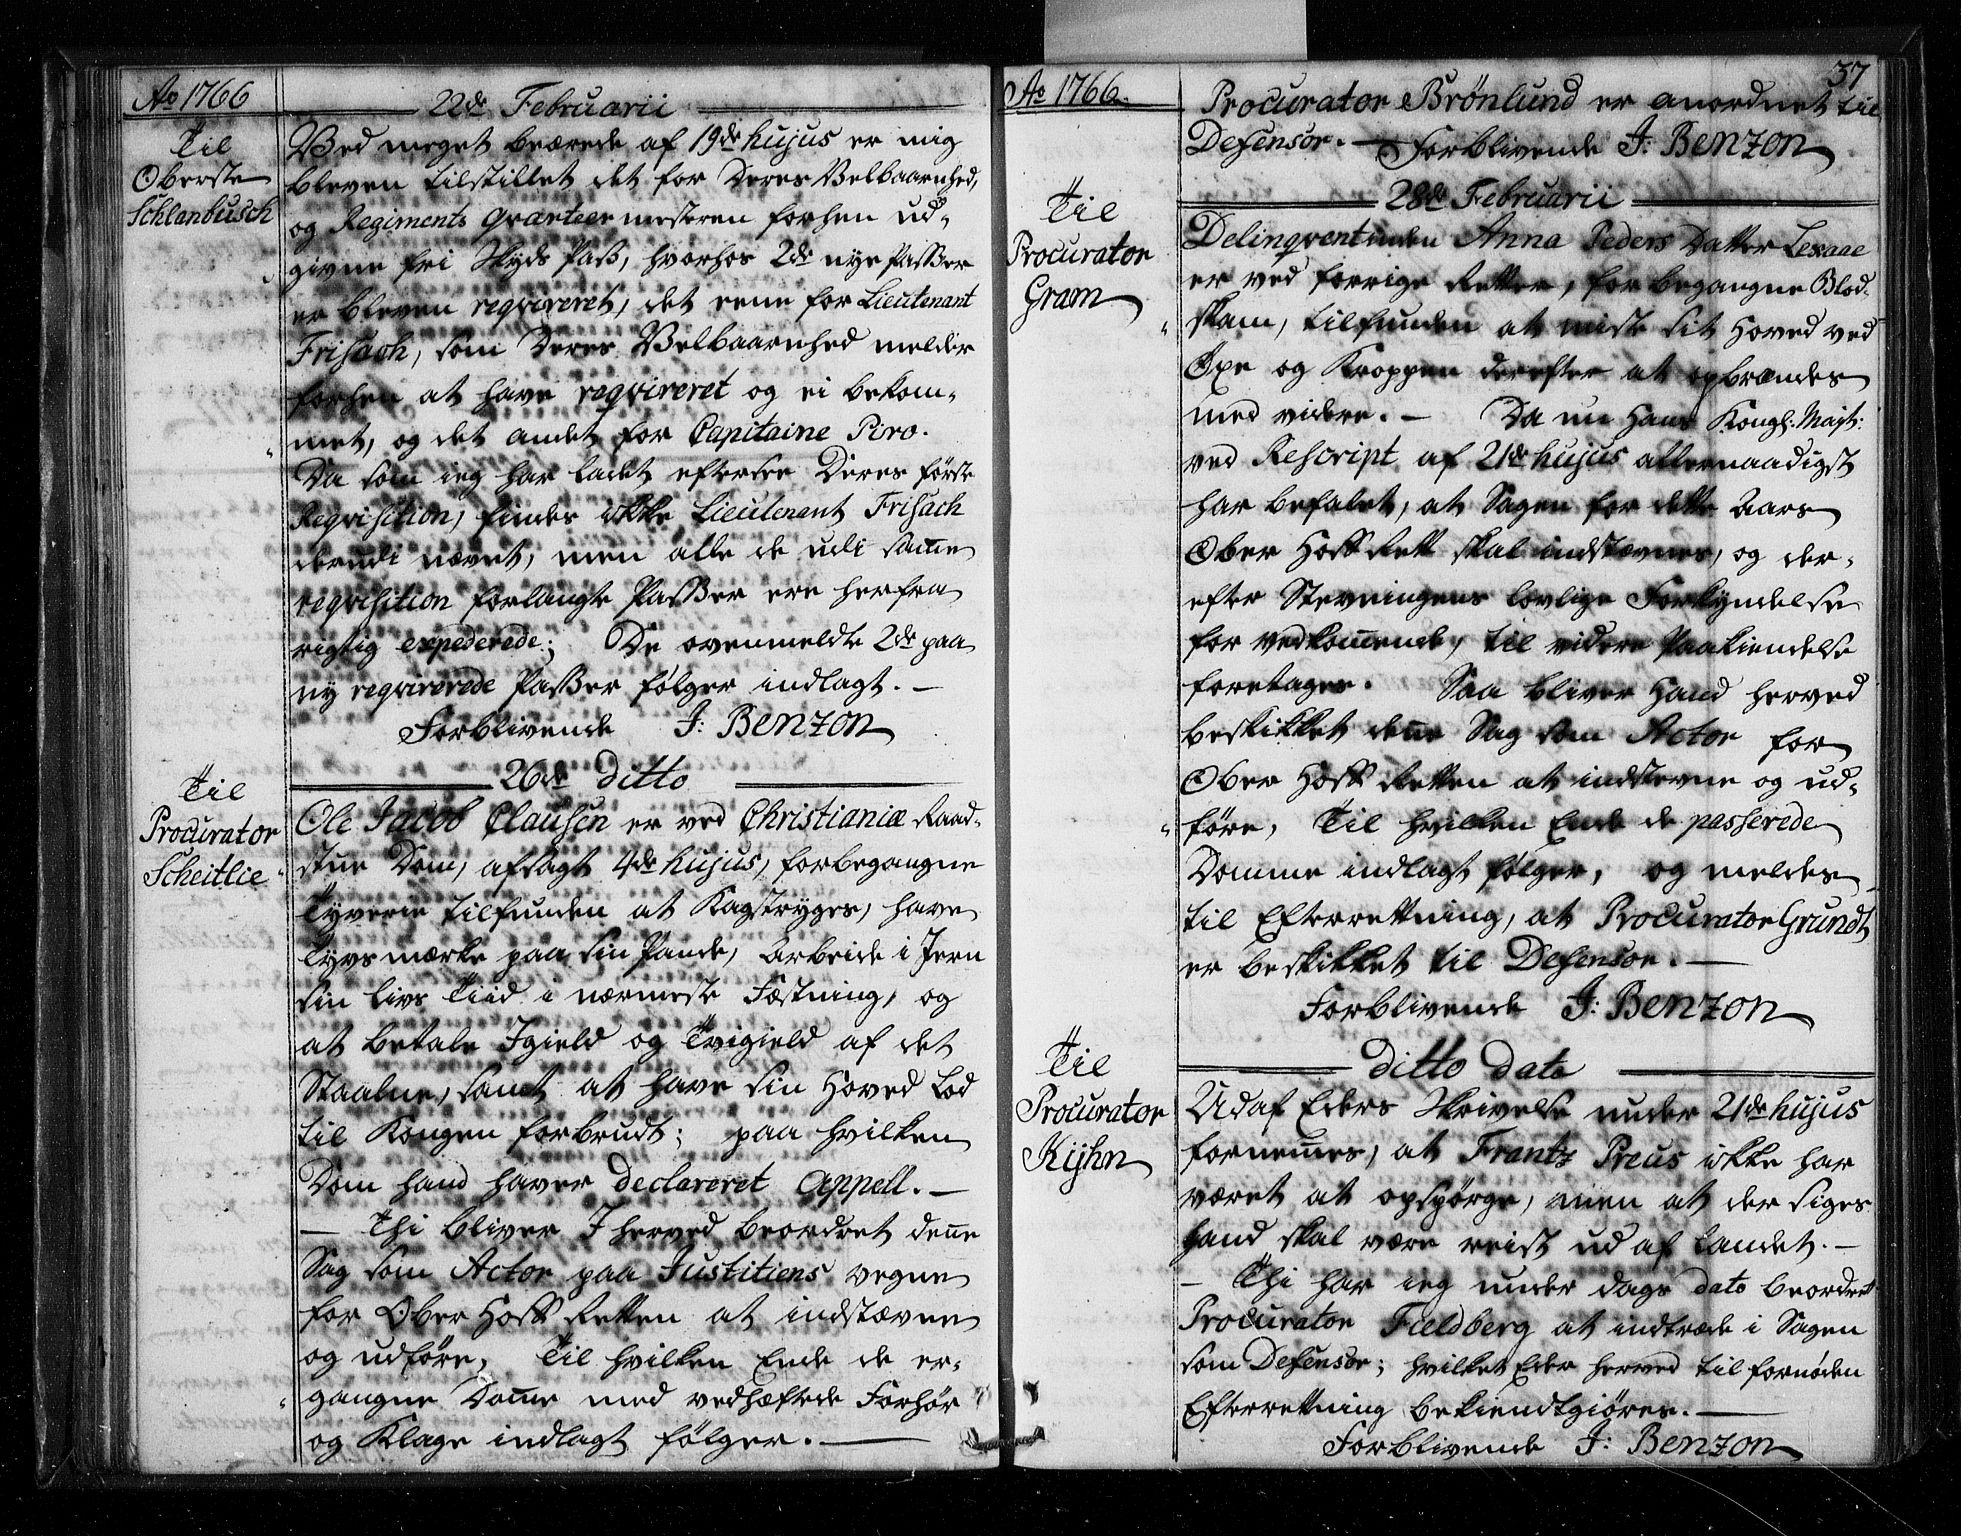 Ao 1766
22de Februarii
Til
Oberste
Schlanbusch
Med meget beærede af 19de hujus er mig
bleven tilstillet det for Deres Velbaarnhed,
og Regiments Qvarteermesteren forhen ud-
givne fri Skyds Pass, hvorhos 2de nye Passer
er bleven reqvireret, det eene for Lieutenant
Frisach, som Deres Velbaarnhed melder
forhen at have reqvireret og ei bekom-
met, og det andet for Capitaine Piro.
Da som ieg har ladet eftersee Deres første
Reqvisition, findes ikke Lieutenant Frisach
derudi nævnt, men alle de udi samme
reqvisition forlangte Passer ere herfra
rigtig expederede; De ovenmeldte 2de paa
ny reqvirerede Passer følger indlagt. —
Forblivende J: Benzon
26de ditto
Til
Procurator
Scheitlie
Ole Jacob Clausen er ved Christianiæ Raad-
stue Dom, afsagt 4de hujus, for begangne
Tyverie tilfunden at Kagstryges, have
Tyvs mærke paa sin Pande, Arbeide i Jern
sin livs Tiid i nærmeste Fæstning, og
at betale Igield og Tvigield af det
Staalne, samt at have sin Hoved Lod
til Kongen forbrudt; paa hvilken
Dom hand haver declareret Appell. —
— Thi bliver I herved beordret denne
Sag som Actor paa Justitiens vegne
for Ober Hoff Retten at indstævne
og udføre, Til hvilken Ende de er-
gangne Domme med vedhæftede Forhør
og Klage indlagt følger. —
37
Ao 1766.
Procurator Brönlund er anordnet til
Defensor. — Forblivende J: Benzon
28de Februarii
Til
Procurator
Gram
Delinqventinden Anna Peders Datter Lexaae
er ved forrige Retter, for begangne Blod-
skam, tilfunden at miste sit Hoved ved
Øxe og Kroppen derefter at opbrændes
med videre. — Da nu Hans Kongl: Mayt:
ved Rescript af 21de hujus allernaadigst
har befalet, at Sagen for dette Aars
Ober Hoff Rett skal indstævnes, og der-
efter Stevningens lovlige Forkyndelse
for vedkommende, til videre Paakiendelse
foretages. Saa bliver Hand herved
beskikket denne Sag som Actor for
Ober Hoff Retten at indstevne og ud-
føre, Til hvilken Ende de passerede
Domme indlagt følger, og meldes
til Efterretning, at Procurator Grundt
er beskikket til Defensor. —
Forblivende J: Benzon
ditto dato
Til
Procurator
Kijhn
Udaf Eders Skrivelse under 21de hujus
fornemmes, at Frantz Preus ikke har
været at opspørge, men at der siges
hand skal være reist ud af Landet. —
— Thi har ieg under dags dato beordret
Procurator Fieldberg at indtræde i Sagen
som Defensor; hvilket Eder herved til fornøden
Efterretning bekiendtgiøres. —
Forblivende J: Benzon